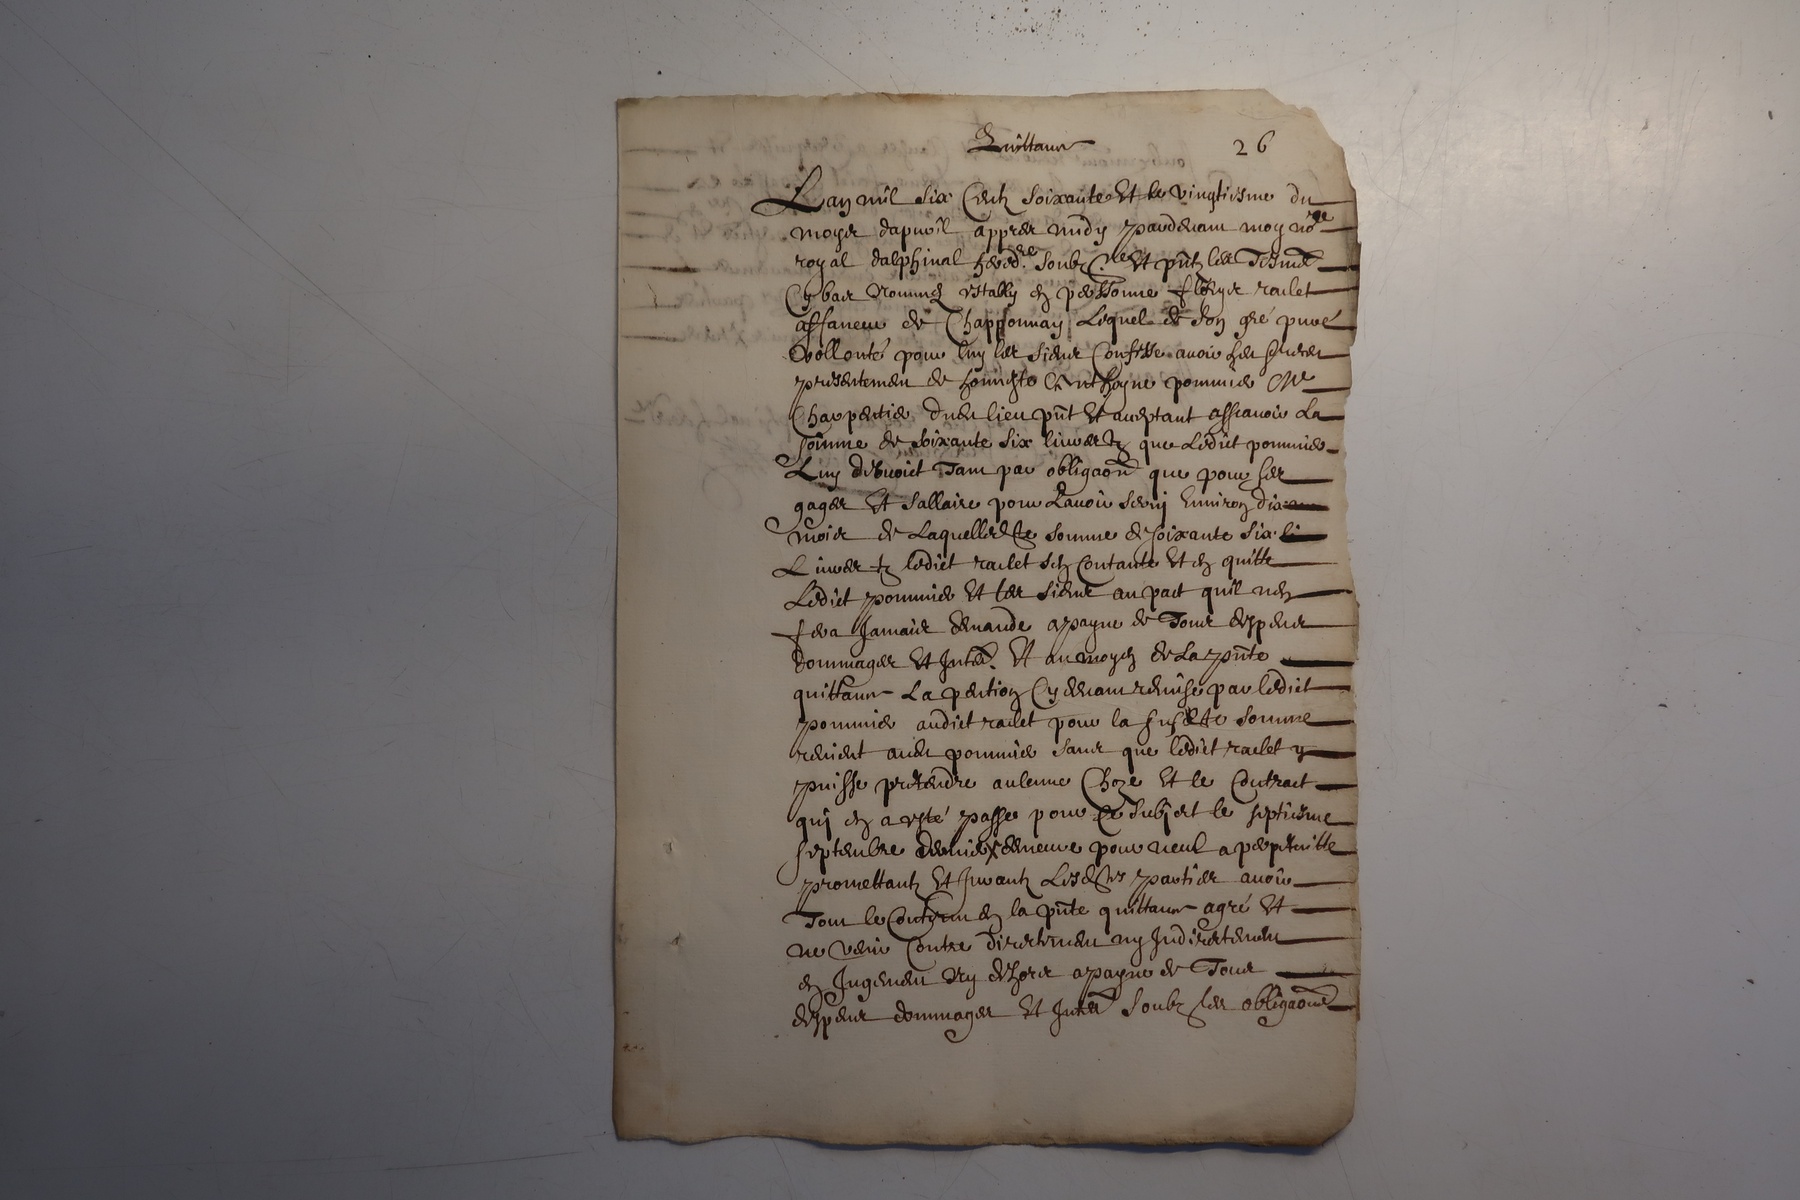 Quittance 26
Lan mil six centz soixante et le vingtiesme du
moys dapvril appres midy pardevant moy no.re
royal dalphinal hered.re soubz.ne et pñt les tesmĩs
cy bas nommez estably en personne racлet
affaneur de Chapponnay Lequel de son gré pure
vollonté pour luy les siens Confesse avoir heu
presentement de honneste Anthoyne pommier M.e
Charpentier dudit lieu pñt et acceptant assavoir La
somme de soixante six livres tz que Ledict pommier
Luy debvoict Tam par obligaõn que pour ses
gages et sallaire pour Lavoir servy Environ dix
mois de Laquelle somme de soixante six li
Livres tz ledict raclet sen contante et en quitte
Ledict pommier et les siens au pact quil nen
fera Jamais demande a payne de Tous despens
dommages et Inter. Et au moyen de La pñte
quittance La pention cy devant remise par ledict
pommier audict raclet pour la susdte somme
revient audit pommier sans que ledict raclet y
puisse pretendre aulcune Choze et le Contract
qui en a esté passé pour ce subject le septiesme
septembre dernier demeure pour neul a perpetuitte
promettantz et Jurantz Lesdtes parties avoir
Tout le Contenu en la pñte quittance agré et
ne venir Contre directement ny Indirectement
en Jugement ny dehors a payne de Tous
despens dommages et Inter soubz les obligaõns